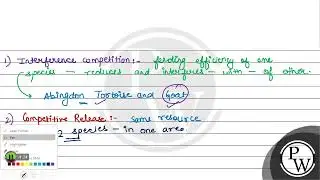 1) Interference competition:- feeding efficiency of one
species - reduces and interferes - with - of other.
Abingdon Tortoise and Goat
2) Competitive Release:- same resource
2 species - in one area
PW